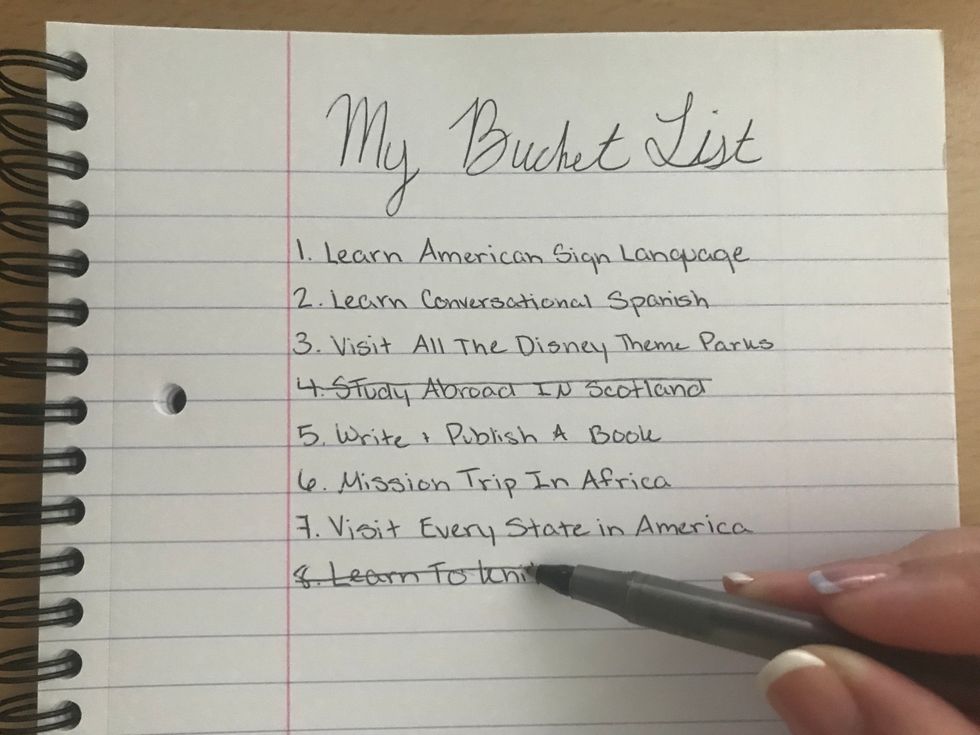 My Bucket List
1. Learn American Sign Language
2. Learn Conversational Spanish
3. Visit All The Disney Theme Parks
4. Study Abroad In Scotland
5. Write + Publish A Book
6. Mission Trip In Africa
7. Visit Every State in America
8. Learn To